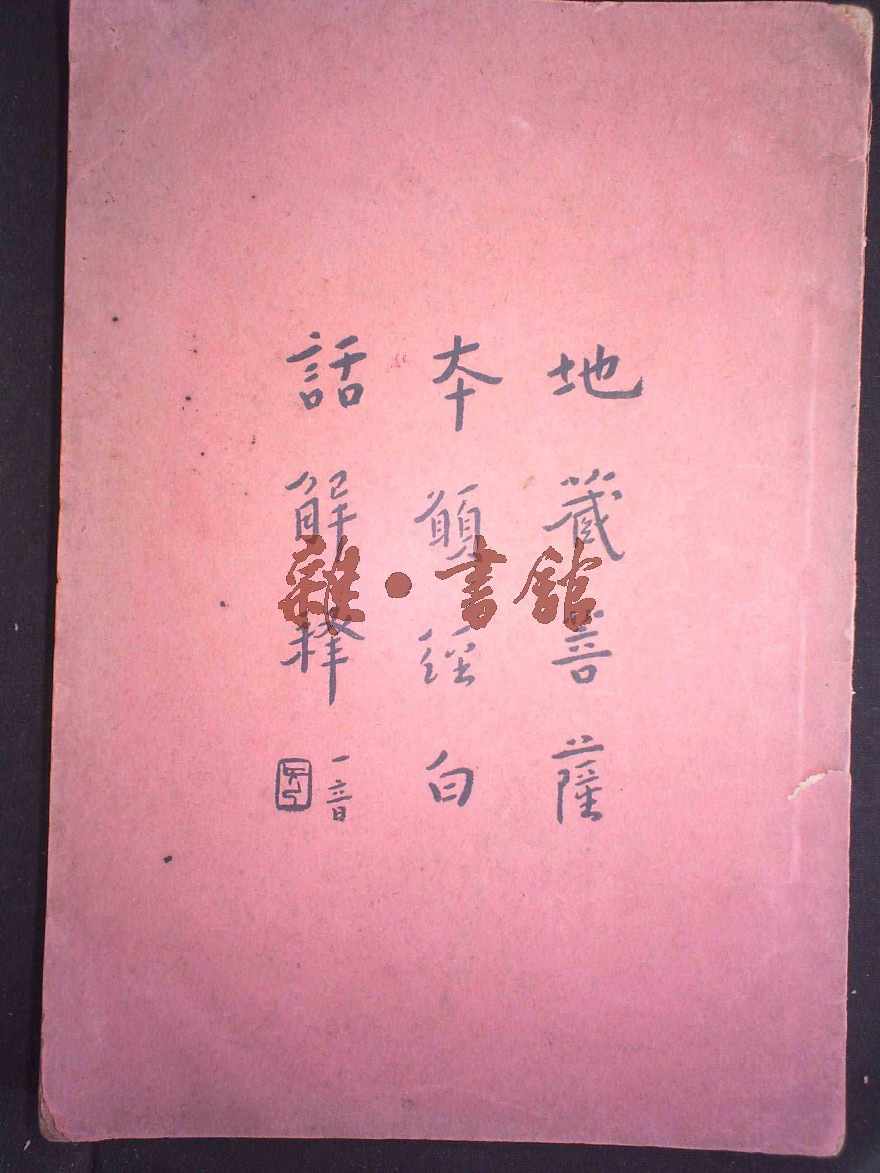 地藏菩薩
本願經白
話解釋
一音
雜·書館